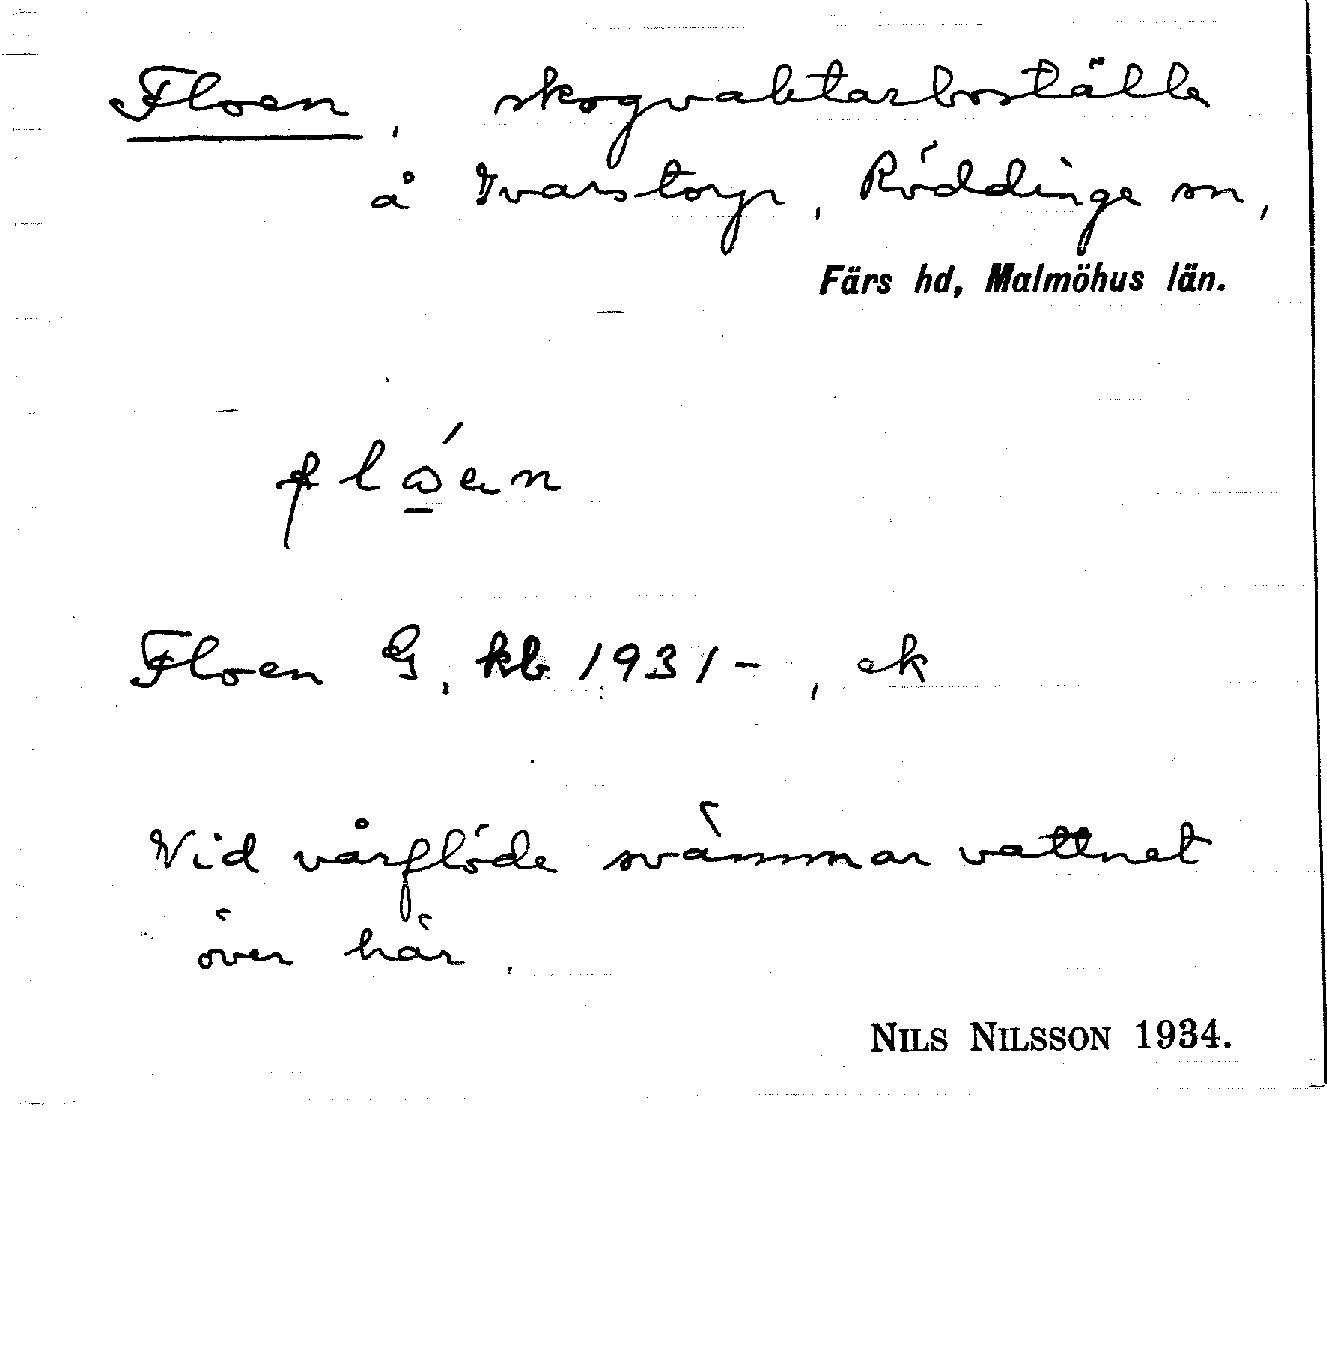 Floen, skogvaktarboställe
å Ivarstorp, Röddinge sn,
Färs hd, Malmöhus län.
fló̱en
Floen G, kb 1931-, ek
Vid vårflöde svämmar vattnet
över här.
NILS NILSSON 1934.